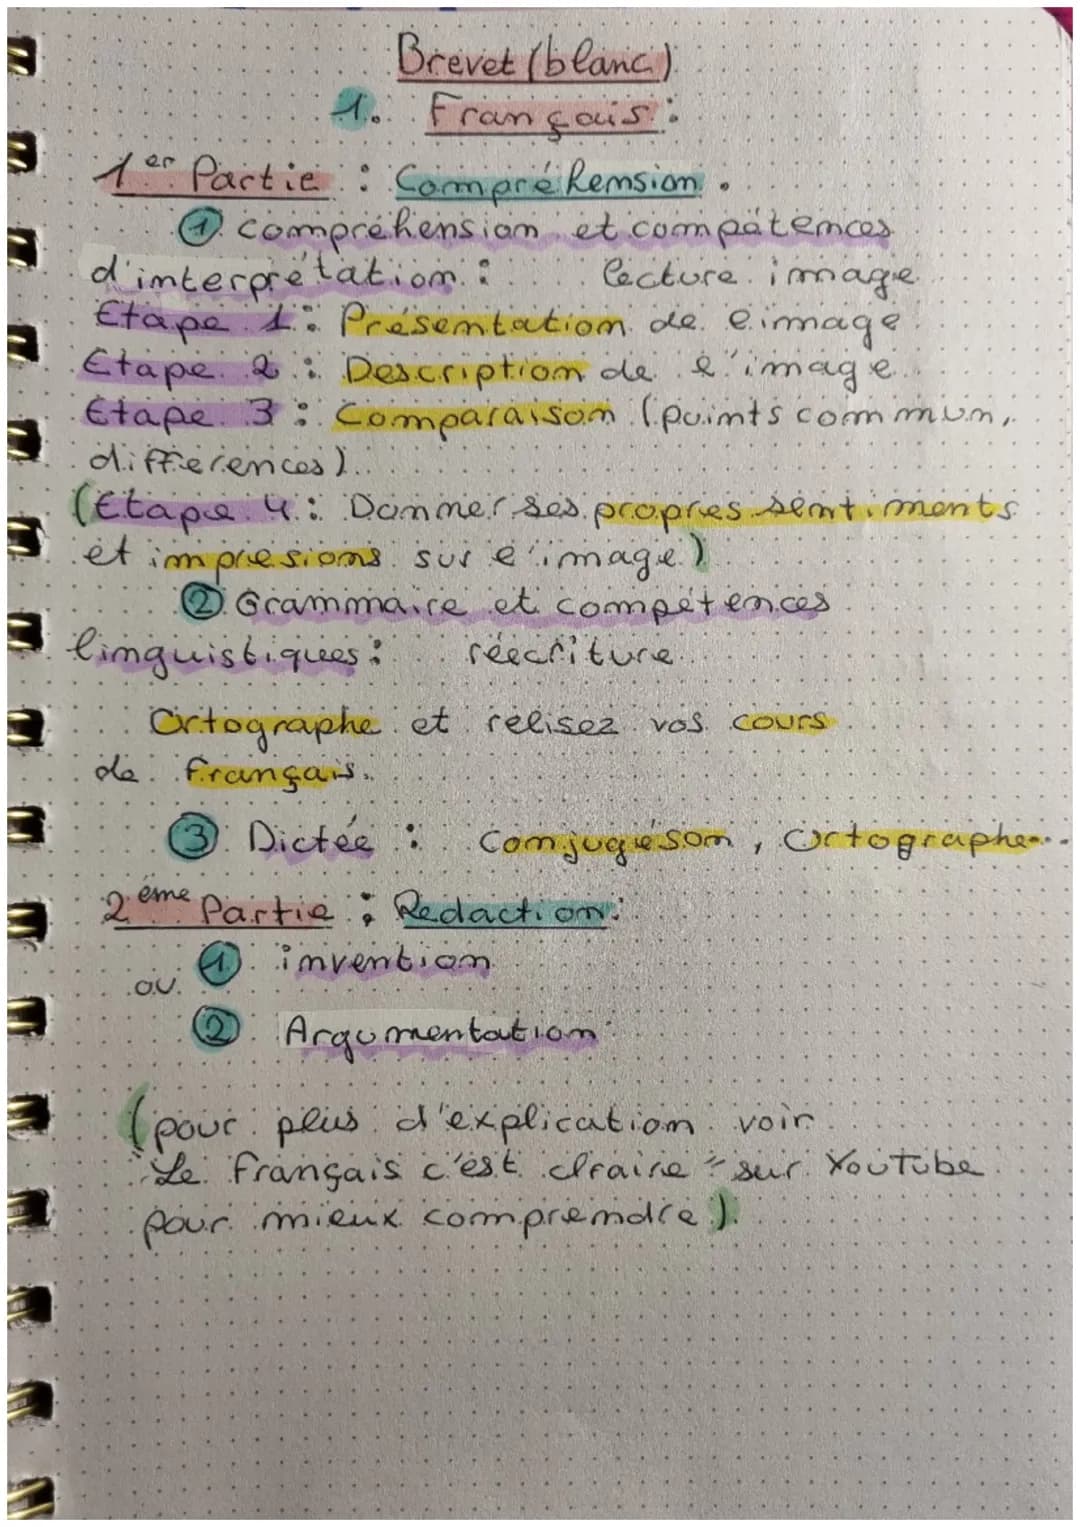 Brevet (blanc)
1. Français :
1er Partie : Compréhension.
① compréhension et compétences
d'interprétation : lecture image
Etape 1 : Présentation de l'image
Etape 2 : Description de l'image
Etape 3 : Comparaison (points commun,
differences).
(Etape 4 : Donner ses propres sentiments
et impresions sur l'image)
② Grammaire et compétences
linguistiques : réecriture
Ortographe et relisez vos cours
de français.
③ Dictée : Conjugueson, Ortographe..
2ème Partie : Redaction :
① invention
ou
② Argumentation
(pour plus d'explication voir
"Le Français c'est claire" sur YouTube
pour mieux comprendre).